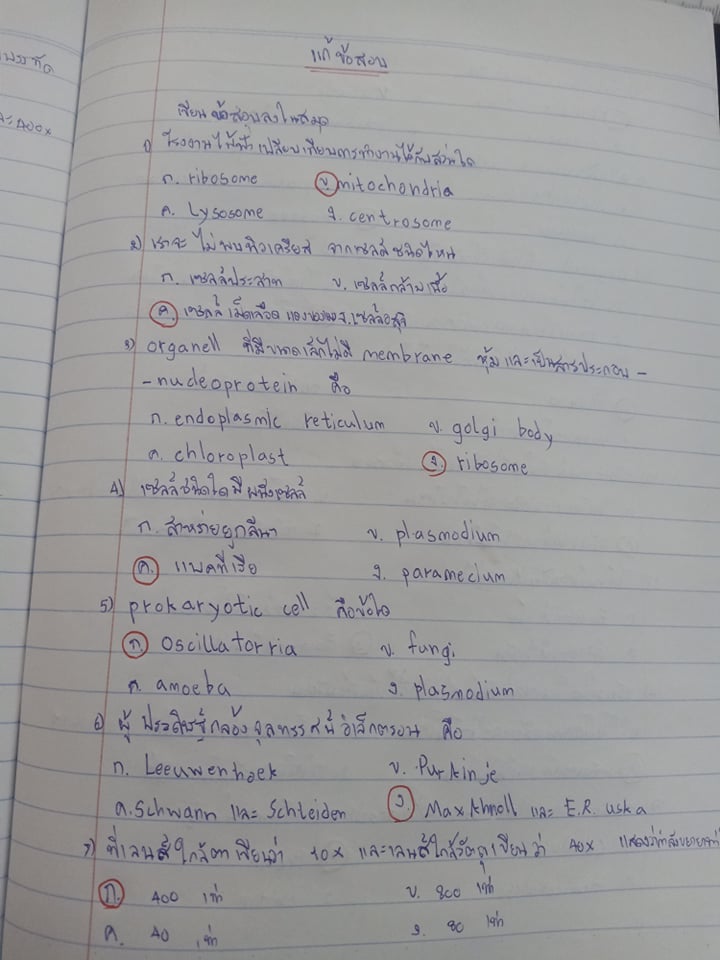 แก้ข้อสอบ
เขียนข้อสอบลงในสมุด
1) โรงงานไฟฟ้า เปรียบเทียบการทำงานได้กับส่วนใด
ก. ribosome ข. mitochondria
ค. Lysosome ง. centrosome
2) เราจะไม่พบนิวเคลียส จากเซลล์ชนิดไหน
ก. เซลล์ประสาท ข. เซลล์กล้ามเนื้อ
ค. เซลล์เม็ดเลือดแดงของ ง. เซลล์อสุจิ
3) organell ที่มีขนาดเล็กไม่มี membrane หุ้ม และเป็นสารประกอบ -
- nucleoprotein คือ
ก. endoplasmic reticulum ข. golgi body
ค. chloroplast ง. ribosome
4) เซลล์ชนิดใดมีผนังเซลล์
ก. สาหร่ายยูกลีนา ข. plasmodium
ค. แบคทีเรีย ง. paramecium
5) prokaryotic cell คือข้อใด
ก. oscillatorria ข. fungi
ค. amoeba ง. plasmodium
6) ผู้ประดิษฐ์กล้องจุลทรรศน์อิเล็กตรอน คือ
ก. Leeuwenhoek ข. Purkinje
ค. Schwann และ Schleiden ง. Max Khnoll และ E.R. uska
7) ที่เลนส์ใกล้ตาเขียนว่า 10x และเลนส์ใกล้วัตถุเขียนว่า 40x แสดงว่ากำลังขยาย
ก. 400 เท่า ข. 800 เท่า
ค. 40 เท่า ง. 80 เท่า
400x